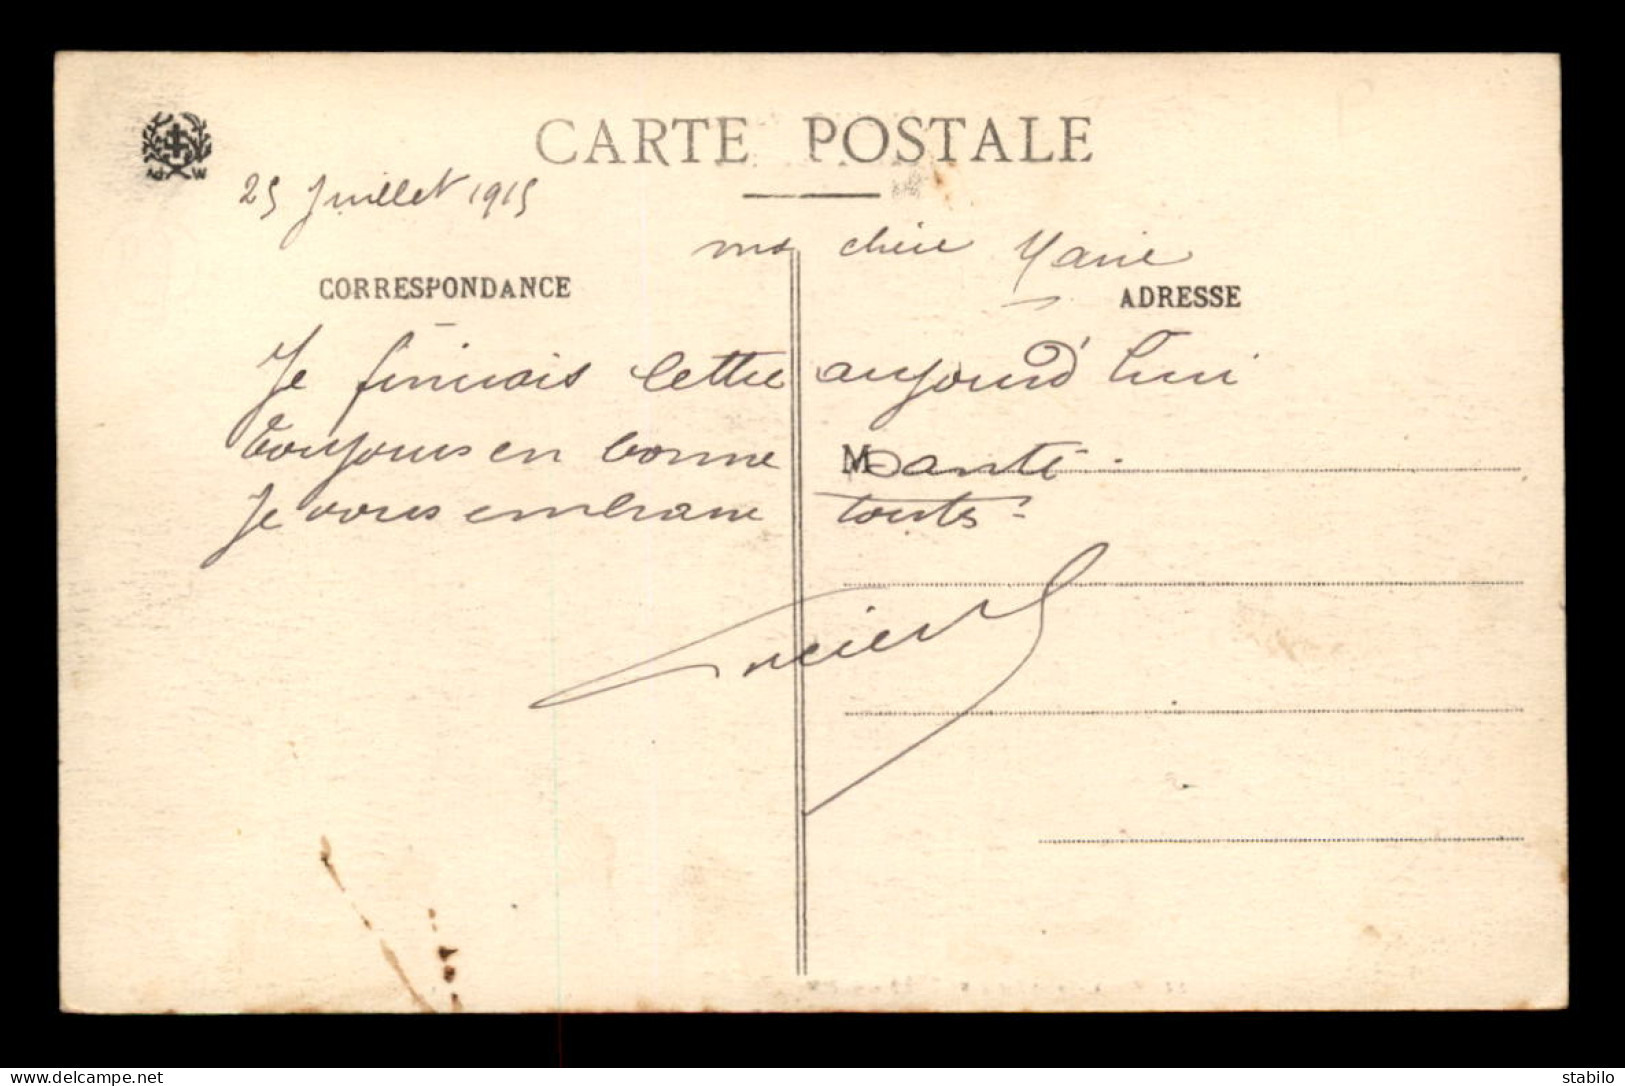 CARTE POSTALE
25 Juillet 1915
ma chère Marie
CORRESPONDANCE
ADRESSE
Je finirais lettre aujourd'hui
toujours en bonne santé.
M
Je vous embrasse touts.
Lucien
delcampe.net
stabilo